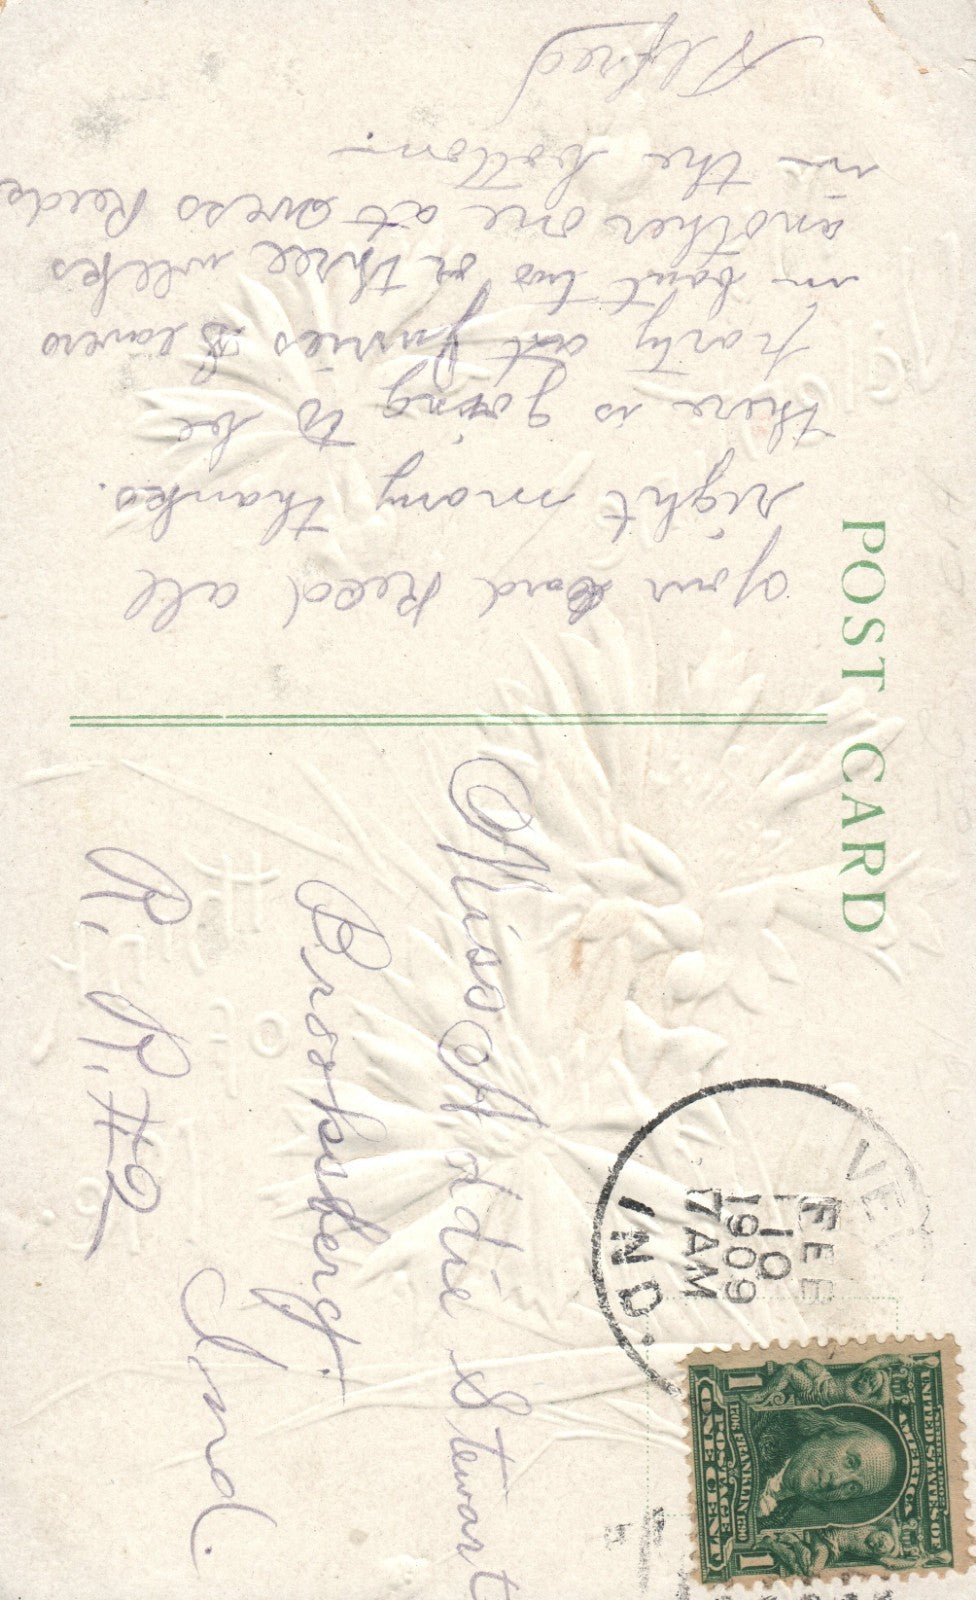 POST CARD
your card Recd all
right many thanks.
there is going to be
party at Junies Beavers
in bout two or three weeks
another one at Reids
in the bottom.
Alfred
Miss Adie Stewart
Brooksberg.
Ind.
R. R. #2
VEV
FEB
10
1909
7 AM
IND.
SERIES 1902
UNITED STATES OF
AMERICA
1706 FRANKLIN 1790
POSTAGE
ONE CENT
1
1